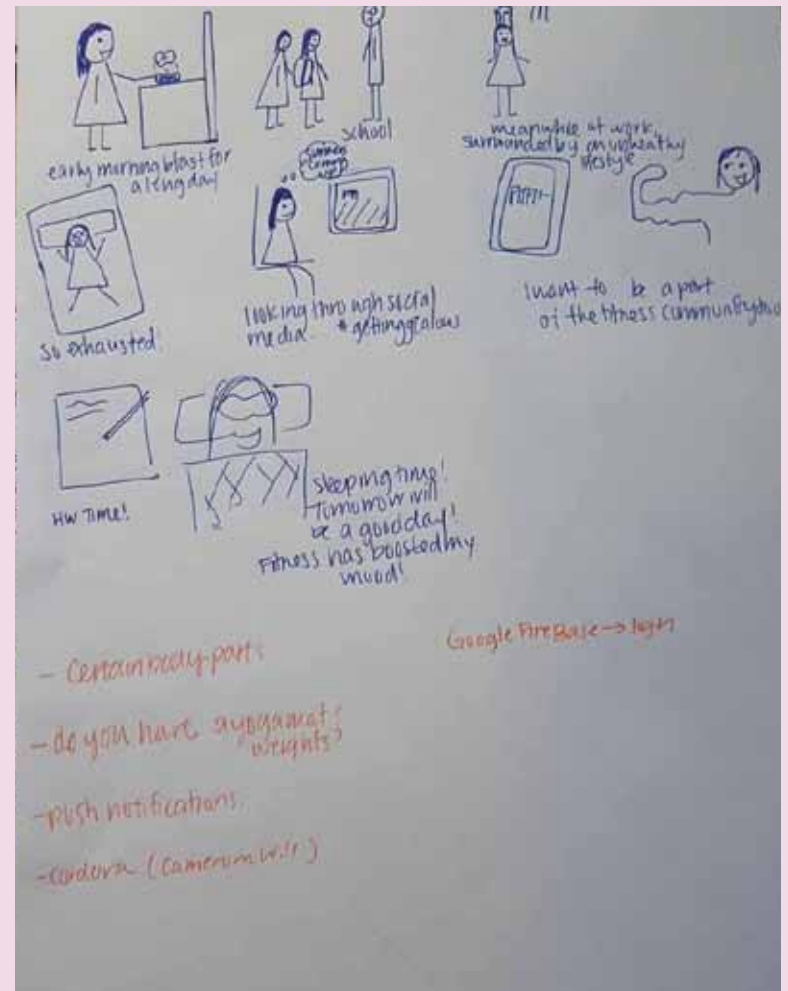 early morning blast for
a long day
school
meanwhile at work,
surrounded by an unheathy
lifestyle
summer
so exhausted
looking through social
media *getting jealous
I want to be a part
of the fitness community
HW Time!
sleeping time!
Tomorrow will
be a good day!
Fitness has boosted my
mood!
- Certain body parts
Google FireBase → login
- do you have a yoga mat?
weights?
- push notifications
- cordova (